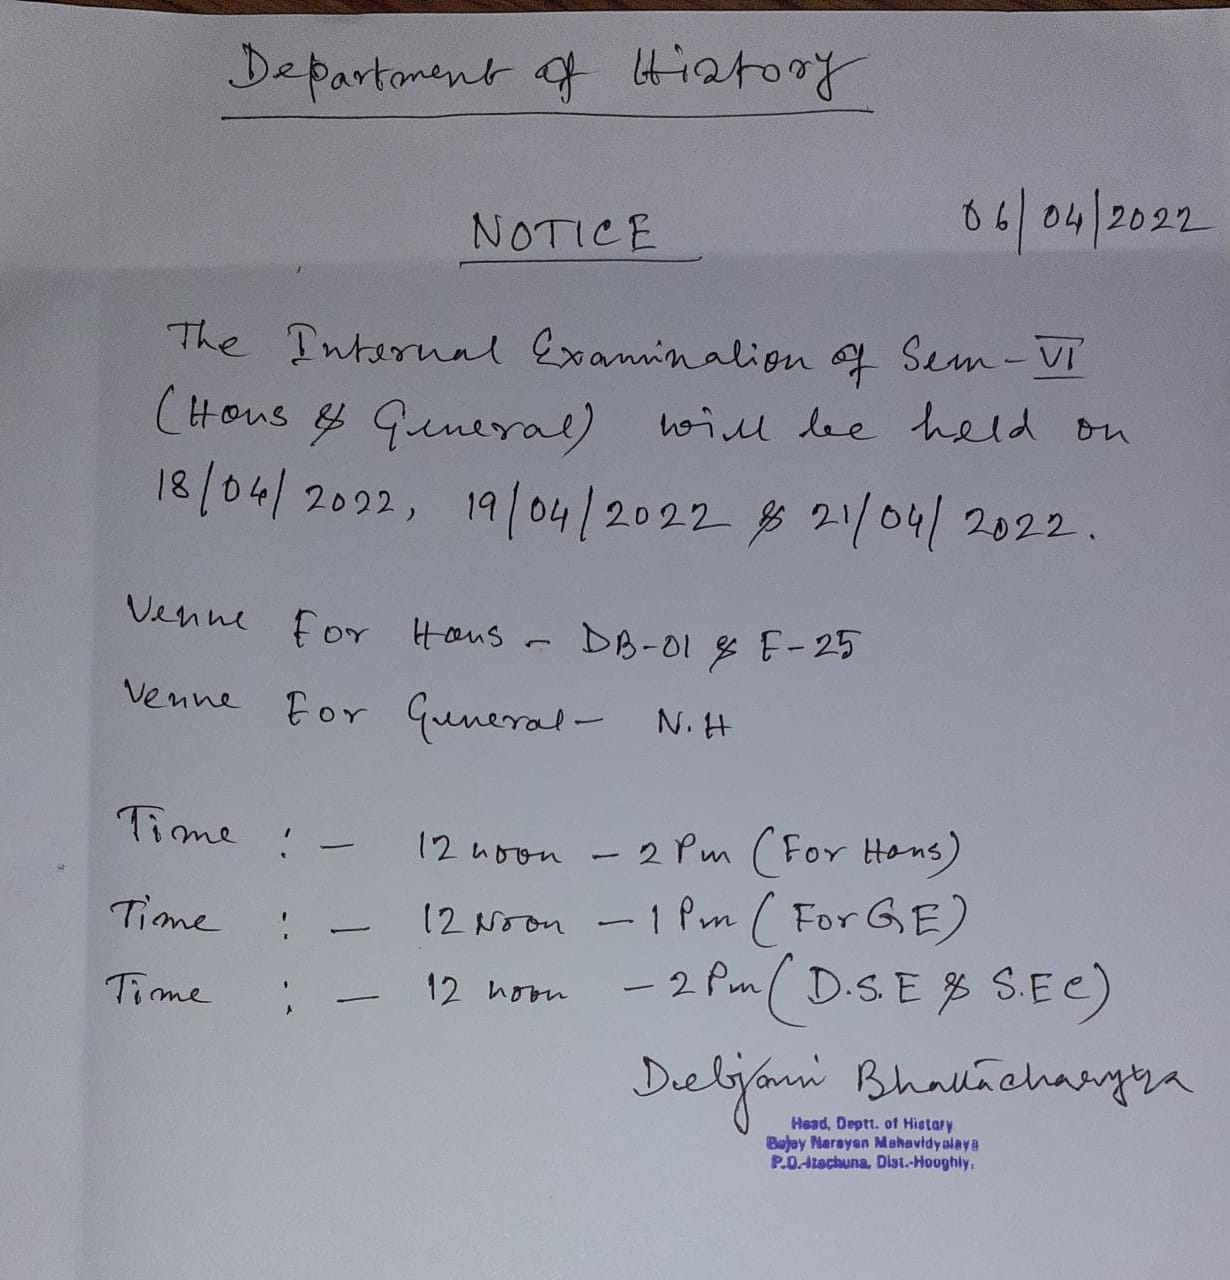 Department of History
NOTICE
06/04/2022
The Internal Examination of Sem-VI
(Hons & General) will be held on
18/04/2022, 19/04/2022 & 21/04/2022.
Venue For Hons - DB-01 & E-25
Venue For General - N.H
Time :- 12 noon - 2 Pm (For Hons)
Time :- 12 Noon - 1 Pm (For GE)
Time :- 12 noon - 2 Pm (D.S.E & S.E.C)
Debjani Bhattacharyya
Head, Deptt. of History
Bejoy Narayan Mahavidyalaya
P.O.-Itachuna, Dist.-Hooghly.